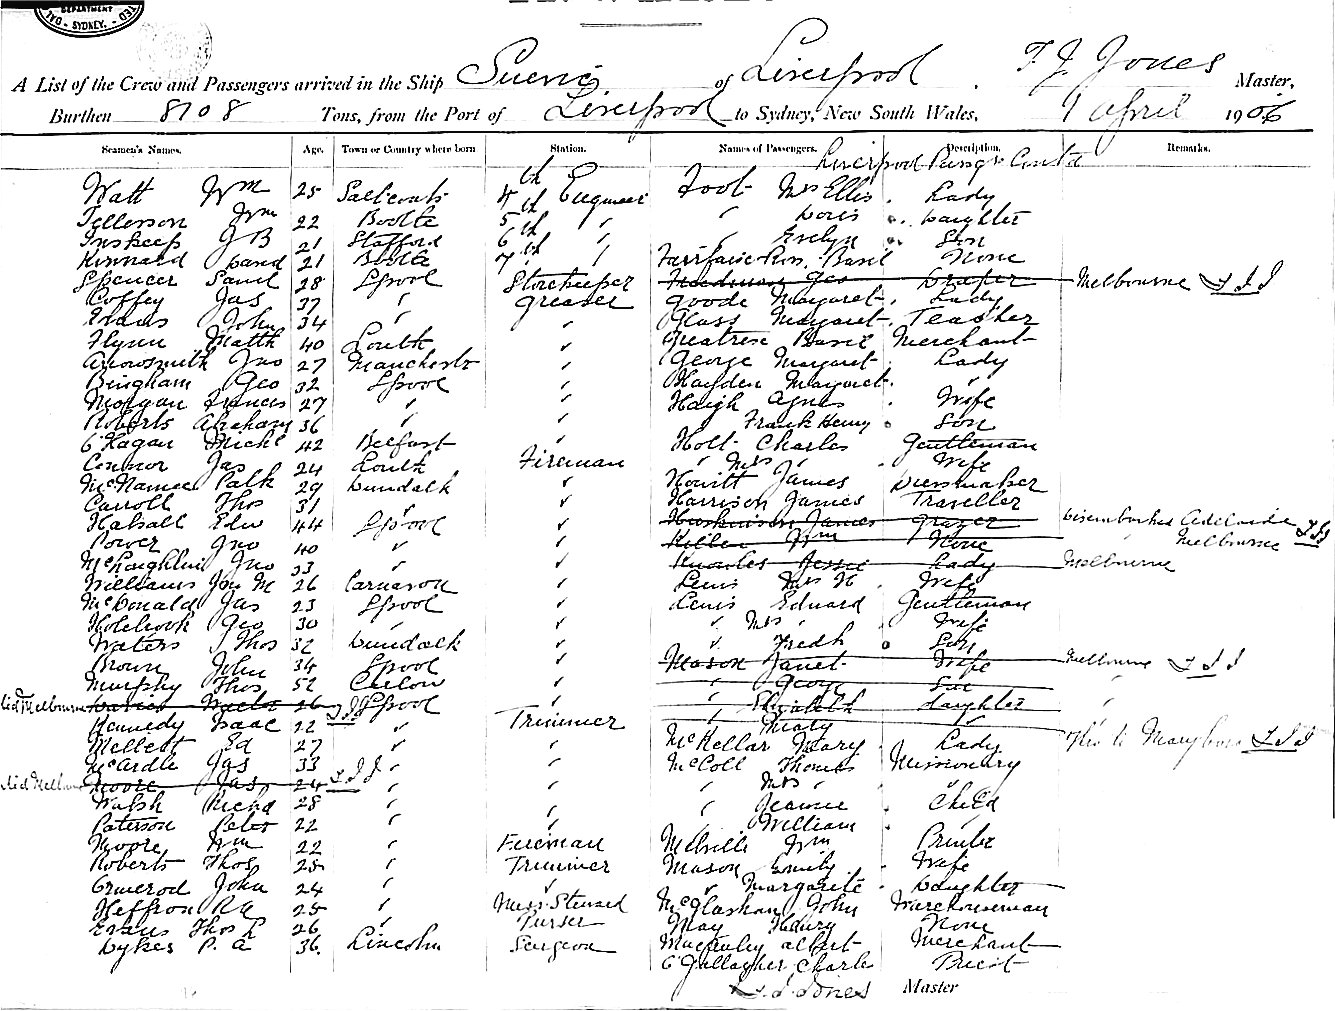 DEPARTMENT
SYDNEY.
A List of the Crew and Passengers arrived in the Ship Suevic of Liverpool, T. J. Jones Master,
Burthen 8108 Tons, from the Port of Liverpool to Sydney, New South Wales, 1 April 1906
Seamen's Names. Age. Town or Country where born Station. Names of Passengers. Description. Remarks.
Liverpool Pasngrs Contd
Watt Wm 25 Saltcoats 4th Engineer Foot Mrs Ellis Lady
Jellerson Wm 22 Bootle 5th " " Doris Daughter
Inskeep J B 21 Stafford 6th " " Evelyn Son
Kinnard David 21 Bootle 7th " Fairfaire Ross Basil None
Spencer Saml 28 Lpool Storekeeper Friedman Geo Draper Melbourne T J J
Coffey Jas 37 " Greaser Goode Margaret Lady
Evans John 34 " " Glass Margaret Teacher
Flynn Matth 40 Louth " Greatrex Basil Merchant
Arrowsmith Jno 27 Manchester " George Margaret Lady
Bingham Geo 32 Lpool " Hayden Margaret "
Morgan Francis 27 " " Haigh Agnes Wife
Roberts Abraham 36 " " Frank Henry Son
O'Hagan Michl 42 Belfast " Holt Charles Gentleman
Connor Jas 24 Louth Fireman " Mrs " Wife
McNamee Patk 29 Dundalk " Howitt James Dressmaker
Carroll Thos 31 " " Harrison James Traveller
Halsall Edw 44 Lpool " Huskinson James Grazer Disembarked Adelaide T J J
Power Jno 40 " " Killen Wm None " Melbourne
McLoughlin Jno 33 " " Knowles Jessie Lady Melbourne
Williams Jon M 26 Carnarvon " Lewis Mrs H Wife
McDonald Jas 23 Lpool " Lewis Edward Gentleman
Holbrook Geo 30 " " " Mrs " Wife
Waters Thos 32 Dundalk " " Fredk Son
Brown John 34 Lpool " Mason Janet Wife Melbourne T J J
Murphy Thos 52 Carlow " " George Son "
Melbourne Davies Walter 26 T J J Lpool " " Elizabeth Daughter "
Kennedy Isaac 22 " Trimmer " Mary "
Mellett Ed 27 " " McKellar Mary Lady This to Maryboro T J J
McArdle Jas 33 " " McColl Thomas Missionary
Moore Jas 24 T J J " " " Mrs "
Walsh Richd 28 " " " Jeannie Child
Paterson Peter 22 " " " William "
Moore Wm 22 " Fireman Melville Wm Printer
Roberts Thos 25 " Trimmer Mason Emily Wife
Ormerod John 24 " " " Margarite Daughter
Heffron R A 25 " Mess Steward McGlashan John Warehouseman
Evans Thos L 26 " Purser May Henry None
Dykes P. A 36 Lincoln Surgeon Macauley Albert Merchant
O'Gallagher Charles Priest
T. J. Jones Master